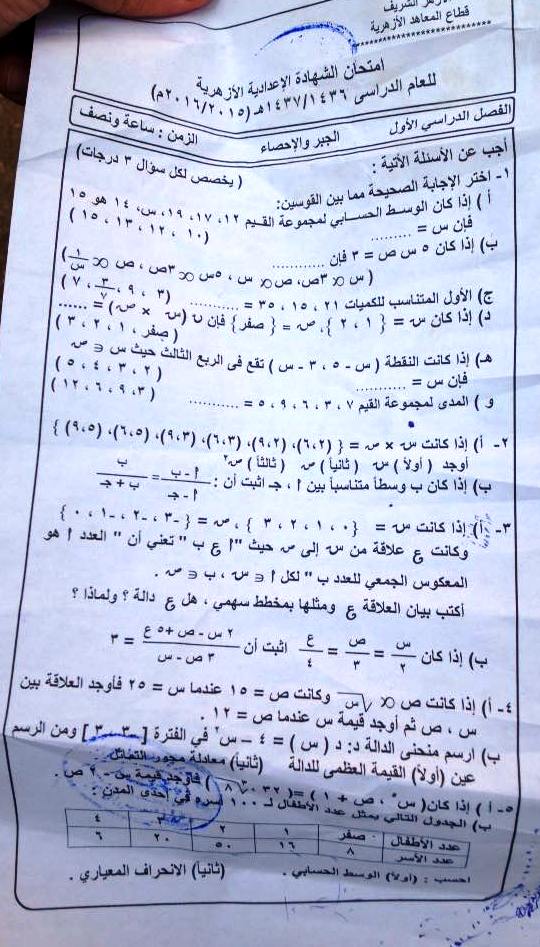 الأزهر الشريف
قطاع المعاهد الأزهرية
امتحان الشهادة الإعدادية الأزهرية
للعام الدراسى ١٤٣٧/١٤٣٦هـ (٢٠١٦/٢٠١٥م)
الفصل الدراسي الأول الجبر والإحصاء الزمن : ساعة ونصف
أجب عن الأسئلة الآتية : ( يخصص لكل سؤال ٣ درجات)
١- اختر الإجابة الصحيحة مما بين القوسين:
أ ) إذا كان الوسط الحسابي لمجموعة القيم ١٢، ١٧، ١٩، س، ١٤ هو ١٥
فإن س = ......... ( ١٠ ، ١٢ ، ١٣ ، ١٥ )
ب) إذا كان ٥ س ص = ٣ فإن ............
( س ∝ ٣ص، ص ∝ س ، ٥س ∝ ٣ص ، ص ∝ ١/س )
ج) الأول المتناسب للكميات ٢١ ، ١٥ ، ٣٥ = .......... ( ٣ ، ٩ ، ٣/٧ ، ٧ )
د) إذا كان س = { ١ ، ٢ } ، ص = { صفر } فإن ن (س × ص) = ......
( صفر ، ١ ، ٢ ، ٣ )
هـ) إذا كانت النقطة ( س - ٥ ، ٣ - س ) تقع فى الربع الثالث حيث س ∈ ص
فإن س = ........... ( ٢ ، ٣ ، ٤ ، ٥ )
و ) المدى لمجموعة القيم ٧ ، ٣ ، ٦ ، ٩ ، ٥ = .......... ( ٣ ، ٩ ، ٦ ، ١٢ )
٢- أ) إذا كانت س × ص = { (٢،٦)، (٢،٩)، (٣،٦)، (٣،٩)، (٥،٦)، (٥،٩) }
أوجد ( أولاً ) س ( ثانياً ) ص ( ثالثاً ) ص٢
ب) إذا كان ب وسطاً متناسباً بين أ ، جـ اثبت أن : (أ - ب)/(أ - جـ) = ب/(ب + جـ)
٣- أ) إذا كانت س = { ٠ ، ١ ، ٢ ، ٣ } ، ص = { -٣ ، -٢ ، -١ ، ٠ }
وكانت ع علاقة من س إلى ص حيث "أ ع ب " تعني أن " العدد أ هو
المعكوس الجمعي للعدد ب " لكل أ ∈ س ، ب ∈ ص .
أكتب بيان العلاقة ع ومثلها بمخطط سهمي ، هل ع دالة ؟ ولماذا ؟
ب) إذا كان س/٢ = ص/٣ = ع/٤ اثبت أن (٢ س - ص + ٥ ع)/(٣ ص - س) = ٣
٤- أ) إذا كانت ص ∝ √س وكانت ص = ١٥ عندما س = ٢٥ فأوجد العلاقة بين
س ، ص ثم أوجد قيمة س عندما ص = ١٢ .
ب) ارسم منحنى الدالة د: د ( س ) = ٤ - س٢ في الفترة [ -٣ ، ٣ ] ومن الرسم
عين (أولاً) القيمة العظمى للدالة (ثانياً) معادلة محور التماثل .
٥- أ ) إذا كان( س٥ ، ص + ١ ) = ( ٣٢ ، ∛٨ ) فأوجد قيمة س - ٢ ص .
ب) الجدول التالي يمثل عدد الأطفال لـ ١٠٠ أسره في أحدى المدن :
عدد الأطفال صفر ١ ٢ ٣ ٤
عدد الأسر ٨ ١٦ ٥٠ ٢٠ ٦
احسب : (أولاً) الوسط الحسابي . (ثانياً) الانحراف المعياري .